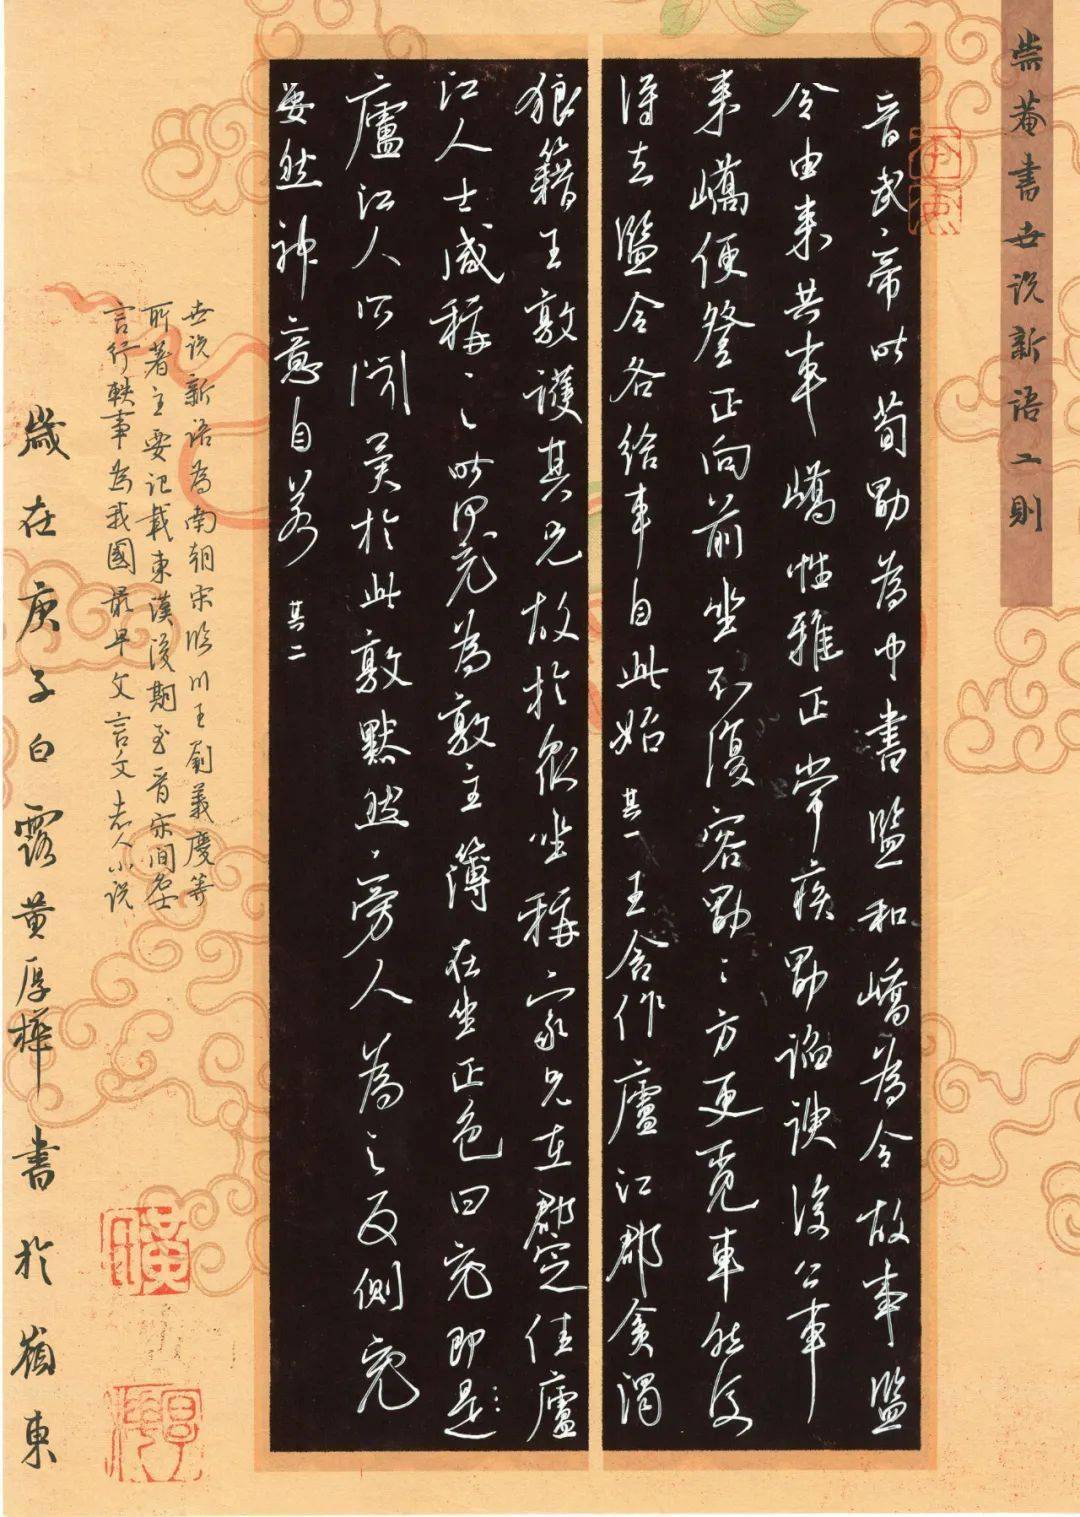 崇菴書世説新語二則
晉武帝以荀勖為中書監和嶠為令故事監
令由來共車嶠性雅正常疾勖諂諛後公車
來嶠便登正向前坐不復容勖〻方更覓車然後
得去監令各給車自此始 其一 王含作廬江郡貪濁
狼籍王敦護其兄故於眾坐稱家兄在郡定佳廬
江人士咸稱〻之時何充為敦主簿在坐正色曰充即是
廬江人所聞異於此敦默然旁人為之反側充
晏然神意自若 其二
世説新語為南朝宋臨川王劉義慶等
所著主要記載東漢後期至晉宋間名士
言行軼事為我國最早文言文志人小說
歲在庚子白露黄厚樺書於嶺東